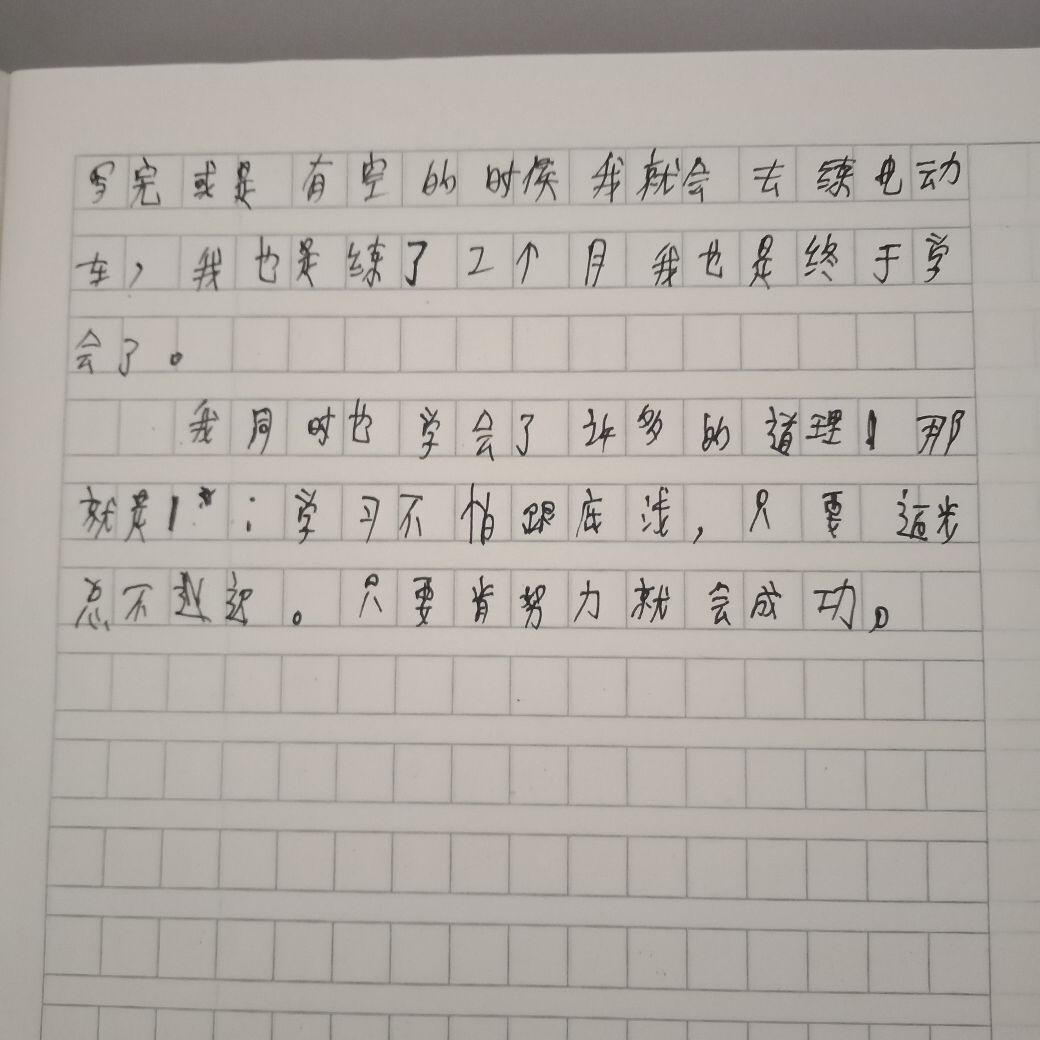 写完或是有空的时侯我就会去练电动
车，我也是练了2个月我也是终于学
会了。
我同时也学会了许多的道理！那
就是：学习不怕跟底浅，只要追步
总不赵起。只要肯努力就会成功。